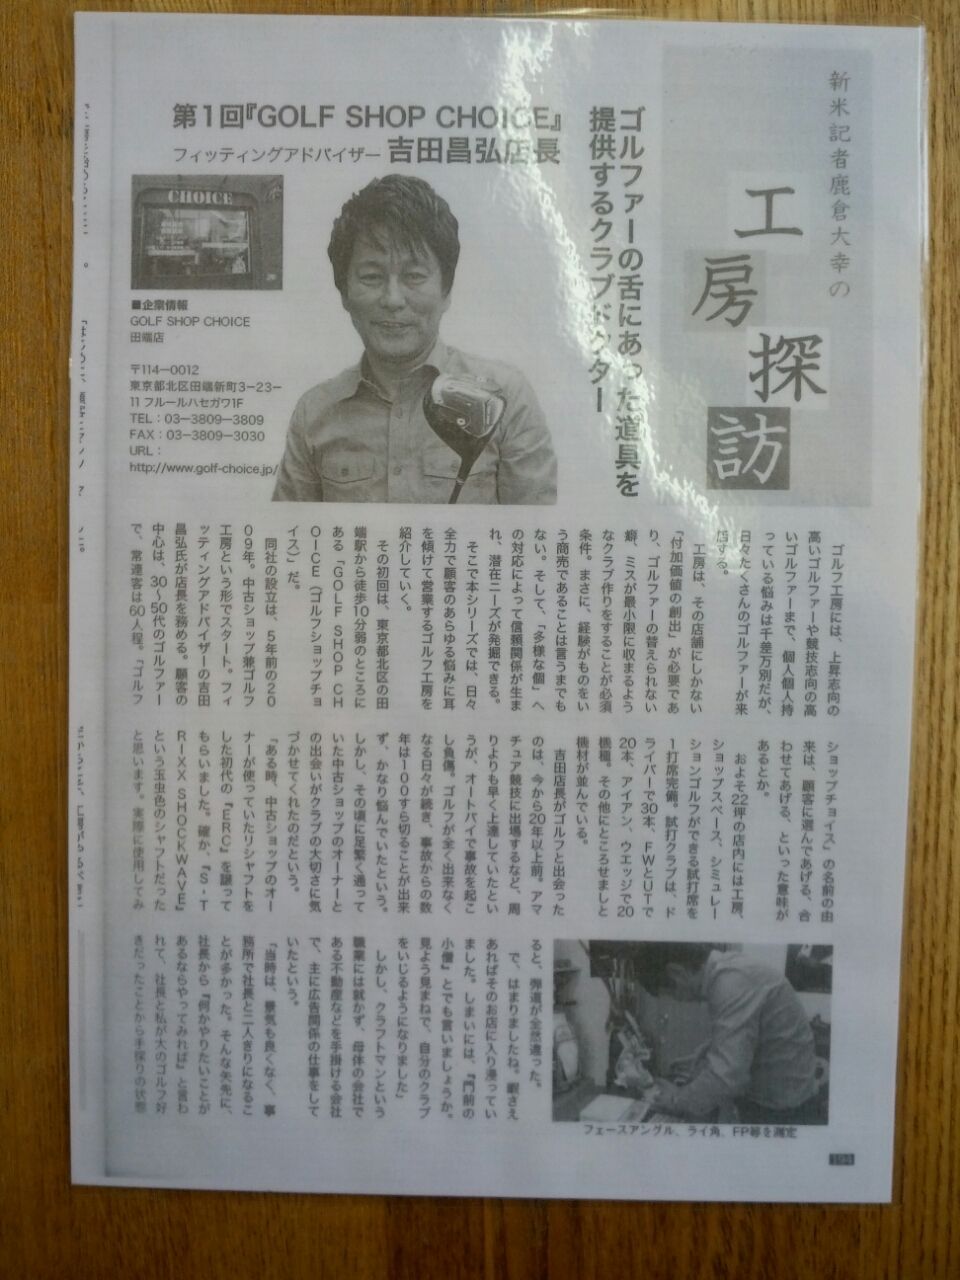 新米記者鹿倉大幸の
工房探訪
ゴルファーの舌にあった道具を
提供するクラブドクター
第1回『GOLF SHOP CHOICE』
フィッティングアドバイザー 吉田昌弘店長
CHOICE
■企業情報
GOLF SHOP CHOICE
田端店
〒114-0012
東京都北区田端新町3-23-
11 フルールハセガワ1F
TEL：03-3809-3809
FAX：03-3809-3030
URL：
http://www.golf-choice.jp/
ゴルフ工房には、上昇志向の
高いゴルファーや競技志向の高
いゴルファーまで、個人個人持
っている悩みは千差万別だが、
日々たくさんのゴルファーが来
店する。
工房は、その店舗にしかない
「付加価値の創出」が必要であ
り、ゴルファーの替えられない
癖、ミスが最小限に収まるよう
なクラブ作りをすることが必須
条件。まさに、経験がものをい
う商売であることは言うまでも
ない。そして、「多様な個」へ
の対応によって信頼関係が生ま
れ、潜在ニーズが発掘できる。
そこで本シリーズでは、日々
全力で顧客のあらゆる悩みに耳
を傾けて営業するゴルフ工房を
紹介していく。
その初回は、東京都北区の田
端駅から徒歩10分弱のところに
ある「GOLF SHOP CH
OICE（ゴルフショップチョ
イス）」だ。
同社の設立は、5年前の20
09年。中古ショップ兼ゴルフ
工房という形でスタート。フィ
ッティングアドバイザーの吉田
昌弘氏が店長を務める。顧客の
中心は、30～50代のゴルファー
で、常連客は60人程。「ゴルフ
ショップチョイス」の名前の由
来は、顧客に選んであげる、合
わせてあげる、といった意味が
あるとか。
およそ22坪の店内には工房、
ショップスペース、シミュレー
ションゴルフができる試打席を
1打席完備。試打クラブは、ド
ライバーで30本、FWとUTで
20本、アイアン、ウエッジで20
機種。その他にところせましと
機材が並んでいる。
吉田店長がゴルフと出会った
のは、今から20年以上前。アマ
チュア競技に出場するなど、周
りよりも早く上達していたとい
うが、オートバイで事故を起こ
し負傷。ゴルフが全く出来なく
なる日々が続き、事故からの数
年は100すら切ることが出来
ず、かなり悩んでいたという。
しかし、その頃に足繁く通って
いた中古ショップのオーナーと
の出会いがクラブの大切さに気
づかせてくれたのだという。
「ある時、中古ショップのオー
ナーが使っていたリシャフトを
した初代の『ERC』を譲って
もらいました。確か、『S・T
RIXX SHOCKWAVE』
という玉虫色のシャフトだった
と思います。実際に使用してみ
ると、弾道が全然違った。
で、はまりましたね。暇さえ
あればそのお店に入り浸ってい
ました。しまいには、『門前の
小僧』とでも言いましょうか。
見よう見まねで、自分のクラブ
をいじるようになりました」
しかし、クラフトマンという
職業には就かず、母体の会社で
ある不動産などを手掛ける会社
で、主に広告関係の仕事をして
いたという。
「当時は、景気も良くなく、事
務所で社長と二人きりになるこ
とが多かった。そんな矢先に、
社長から『何かやりたいことが
あるならやってみれば』と言わ
れて、社長と私が大のゴルフ好
きだったことから手探りの状態
フェースアングル、ライ角、FP等を測定
194